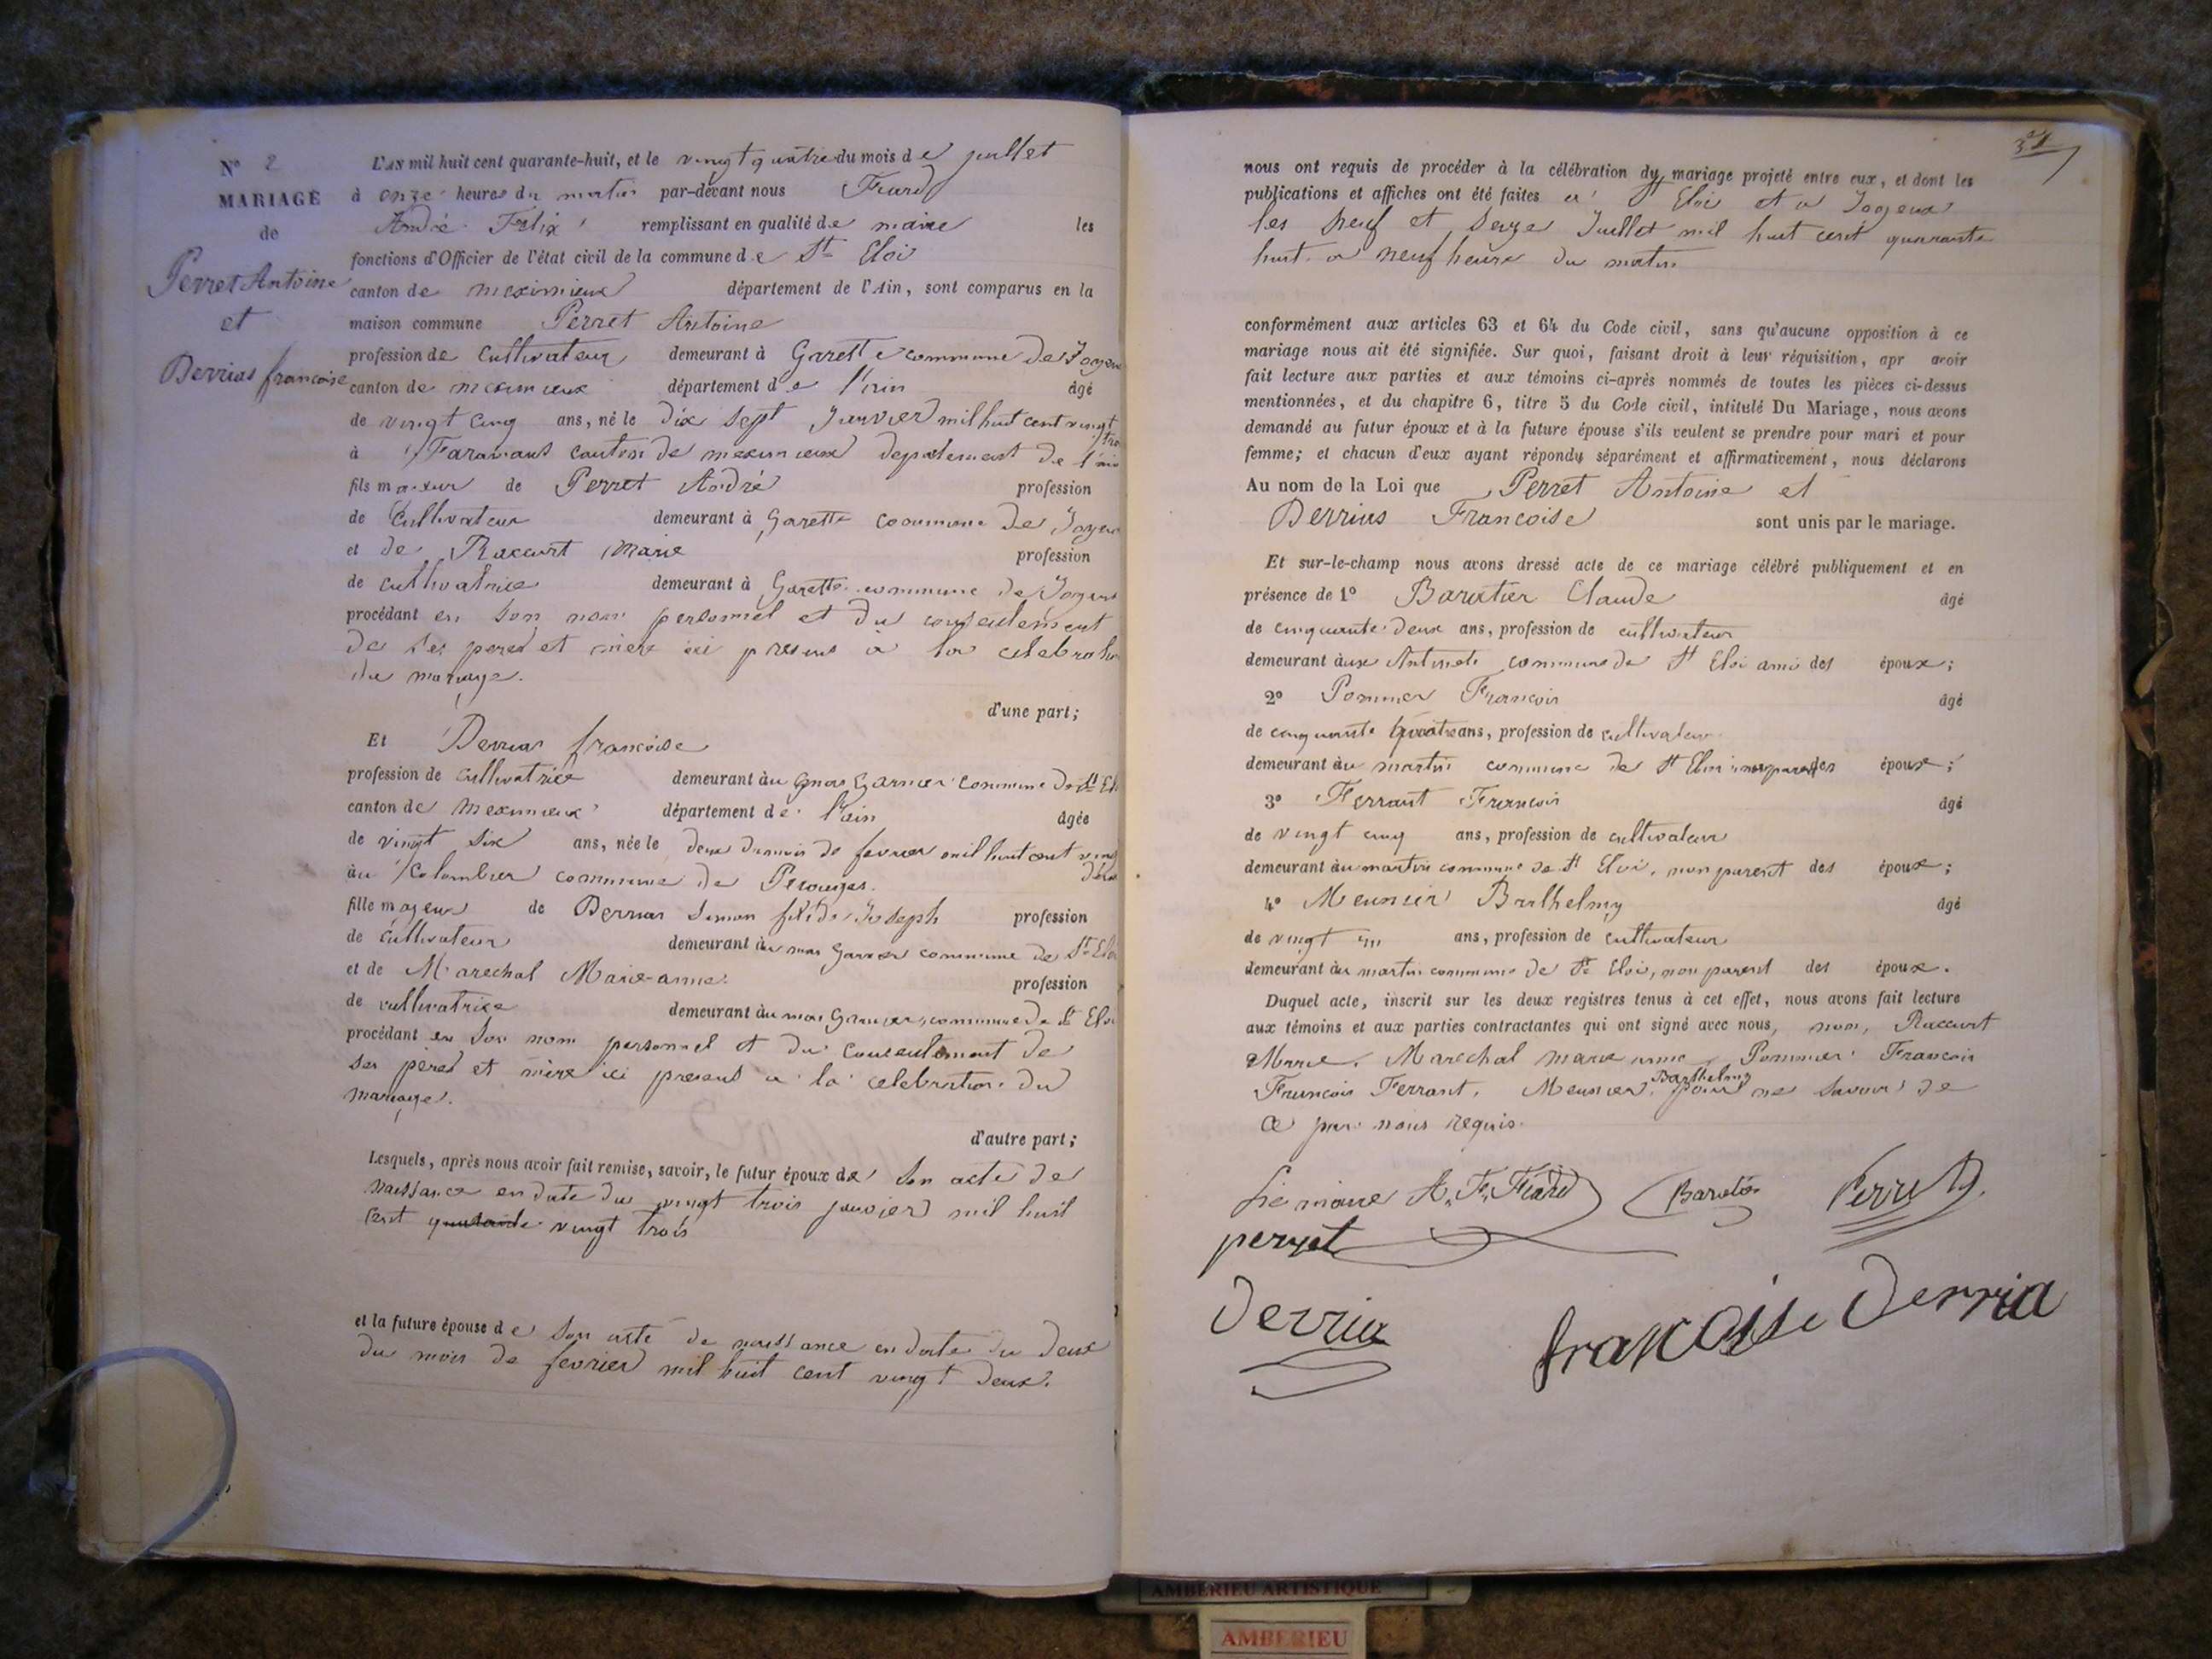 N° 2
MARIAGE
de
Perret Antoine
et
Derrias françoise
L'AN mil huit cent quarante-huit, et le vingt quatre du mois de juillet
à onze heures du matin par-devant nous
André Felix remplissant en qualité de maire les
fonctions d'Officier de l'état civil de la commune de St Eloi
canton de meximieux département de l'Ain, sont comparus en la
maison commune Perret Antoine
profession de Cultivateur demeurant à Garette commune de Joyeux
canton de meximieux département de l'ain âgé
de vingt cinq ans, né le dix sept Janvier mil huit cent vingt trois
à Faramans canton de meximieux departement de l'ain
fils majeur de Perret André profession
de Cultivateur demeurant à Garette commune de Joyeux
et de Raccurt Marie profession
de cultivatrice demeurant à Garette commune de Joyeux
procédant en son nom personnel et du consentement
de ses peres et mere ici present à la celebration
du mariage.
d'une part;
Et Derrias françoise
profession de cultivatrice demeurant au mas Garnier commune de St Eloi
canton de meximieux département de l'ain âgée
de vingt six ans, née le deux du mois de fevrier mil huit cent vingt deux
au Colombier commune de Perouges.
fille majeure de Derrias Simon fils de Joseph profession
de cultivateur demeurant au mas Garnier commune de St Eloi
et de Marechal Marie-anne. profession
de cultivatrice demeurant au mas Garnier, commune de St Eloi
procédant en son nom personnel et du consentement de
ses pères et mère ici present à la celebration du
mariage.
d'autre part;
Lesquels, après nous avoir fait remise, savoir, le futur époux de son acte de
naissance en date du vingt trois janvier mil huit
cent quarante vingt trois
et la future épouse de son acte de naissance en date du deux
du mois de fevrier mil huit cent vingt deux.
31
nous ont requis de procéder à la célébration du mariage projeté entre eux, et dont les
publications et affiches ont été faites à St Eloi et a Joyeux
les neuf et seize Juillet mil huit cent quarante
huit a neuf heure du matin
conformément aux articles 63 et 64 du Code civil, sans qu'aucune opposition à ce
mariage nous ait été signifiée. Sur quoi, faisant droit à leur réquisition, apr avoir
fait lecture aux parties et aux témoins ci-après nommés de toutes les pièces ci-dessus
mentionnées, et du chapitre 6, titre 5 du Code civil, intitulé Du Mariage, nous avons
demandé au futur époux et à la future épouse s'ils veulent se prendre pour mari et pour
femme; et chacun d'eux ayant répondu séparément et affirmativement, nous déclarons
Au nom de la Loi que Perret Antoine et
Derrias Francoise sont unis par le mariage.
Et sur-le-champ nous avons dressé acte de ce mariage célébré publiquement et en
présence de 1° Baratier Claude âgé
de cinquante deux ans, profession de cultivateur
demeurant aux commune de St Eloi ami des époux;
2° Pommier François âgé
de cinquante quatre ans, profession de cultivateur
demeurant au martin commune de St Eloi non parent des époux;
3° Ferrant François âgé
de vingt cinq ans, profession de cultivateur
demeurant au martin commune de St Eloi, non parent des époux;
4° Meunier Barthelmy âgé
de vingt un ans, profession de cultivateur
demeurant au martin commune de St Eloi, non parent des époux.
Duquel acte, inscrit sur les deux registres tenus à cet effet, nous avons fait lecture
aux témoins et aux parties contractantes qui ont signé avec nous, non, Raccurt
Marie. Marechal marie anne, Pommier François
François Ferrant, Meunier Barthelmy pour ne savoir de
ce par nous requis.
Le maire A. F. Baratier Perret
perret
Derria françoise Derria
AMBERIEU ARTISTIQUE
AMBERIEU